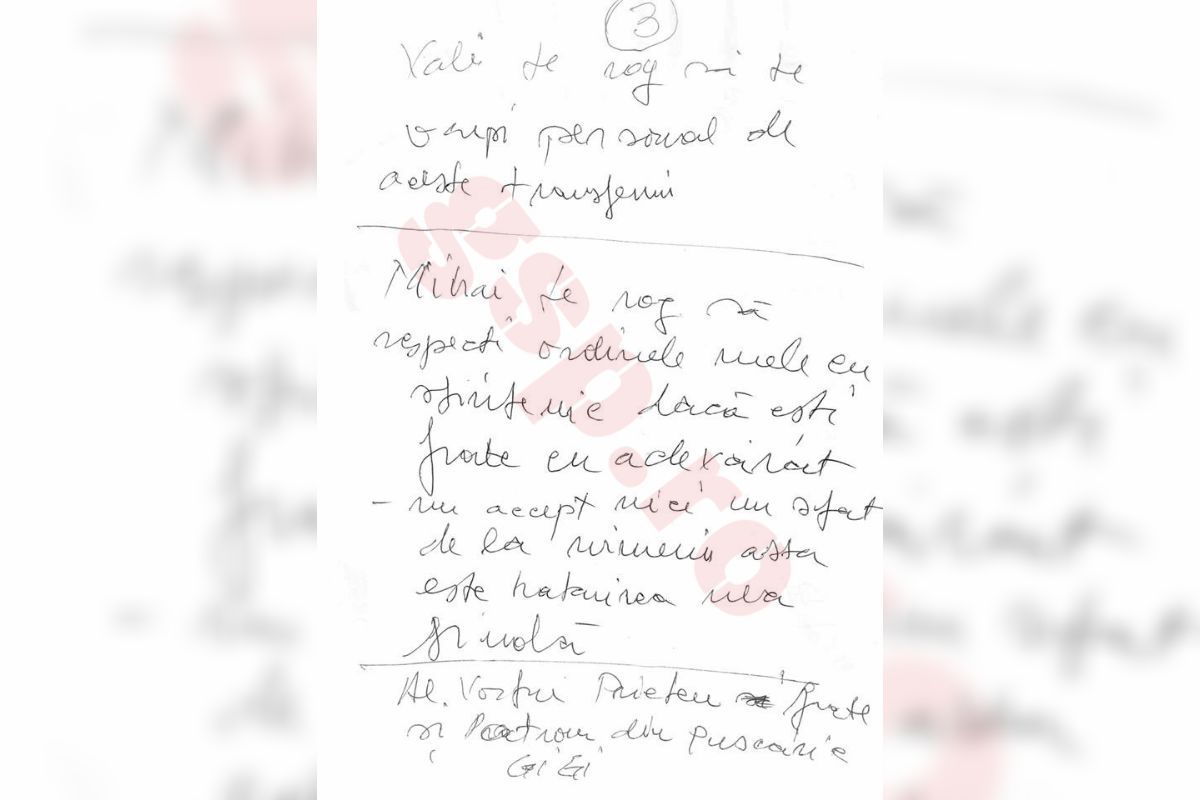 3
Vali te rog să te
ocupi personal de
aceste transferuri
Mihai te rog să
respecti ordinele mele cu
strictetie dacă esti
frate cu adevărat
- nu accept nici un sfat
de la nimeni asta
este hotarirea mea
finală
Al. Vostru Prieten frate
și Patron din puscărie
GiGi
gsp.ro